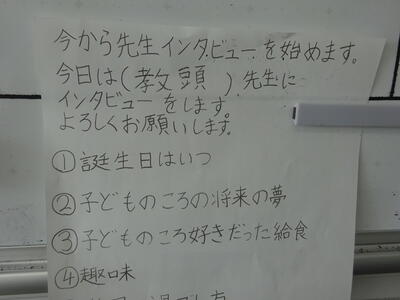 今から先生インタビューを始めます。
今日は(教頭 )先生に
インタビューをします。
よろしくお願いします。
①誕生日はいつ
②子どものころの将来の夢
③子どものころ好きだった給食
④趣味